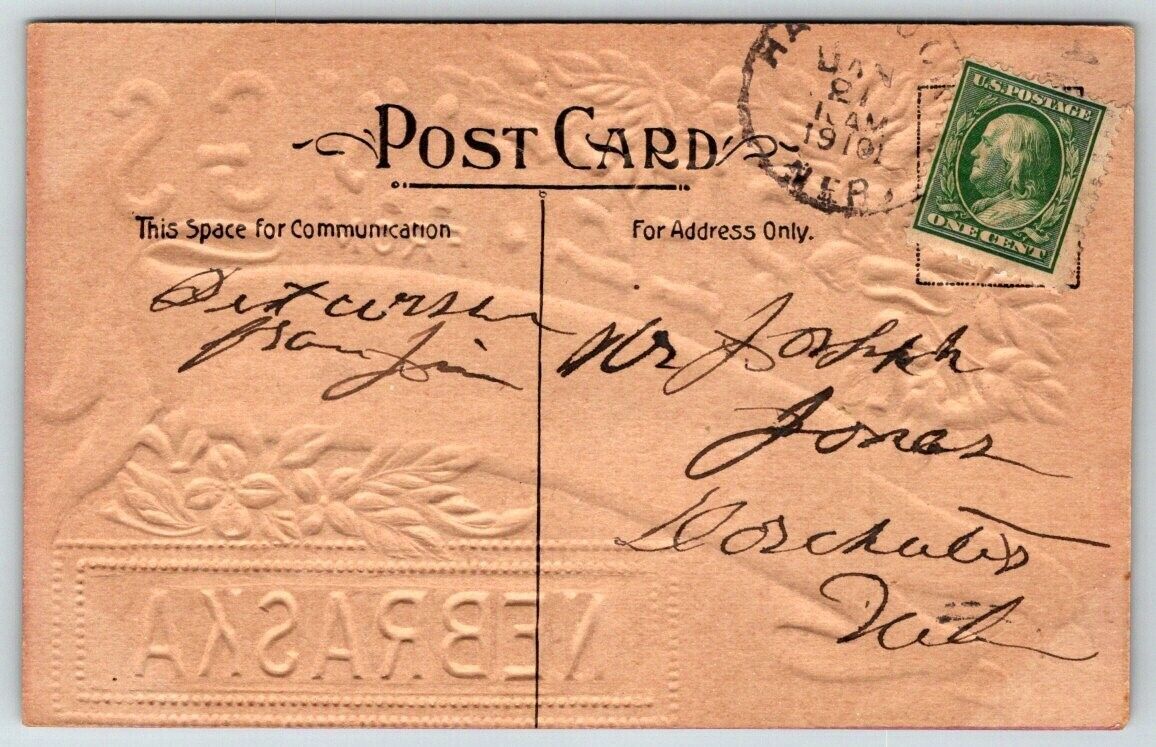 POST CARD
This Space for Communication
For Address Only.
U.S. POSTAGE
ONE CENT
JAN
21
AM
1910
NEB.
Best
from Jim
Mr Joseph
Jones
Dorchester
Neb
NEBRASKA